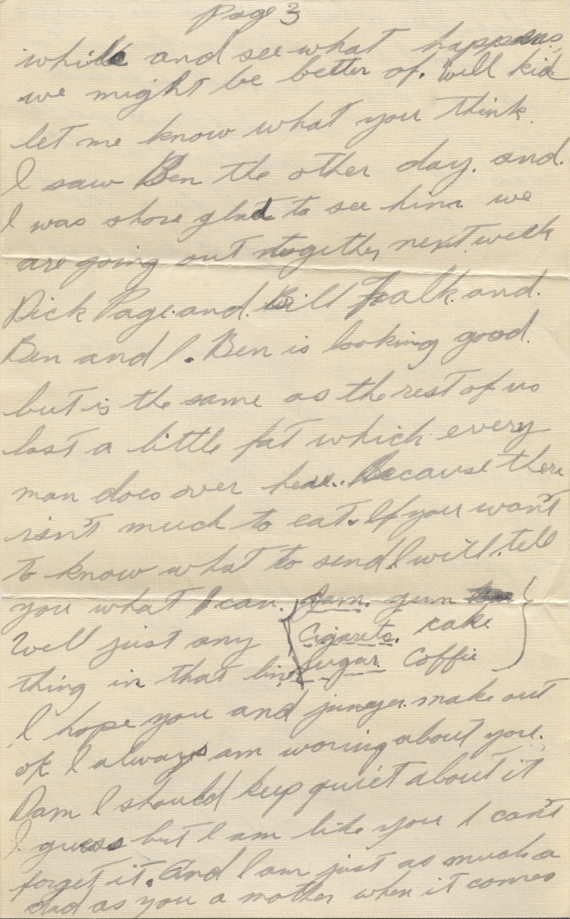 Page 3
while and see what happens
we might be better of. Will kid
let me know what you think.
I saw Ben the other day. and.
I was shore glad to see him we
are going out together next week
Dick Page. and. Bill Falk. and.
Ben and I. Ben is looking good.
but is the same as the rest of us
lost a little fat which every
man does over hear. Because there
isn't much to eat. If you want
to know what to send I will. tell
you what I can. Jam. gum
Well just any Cigarets. cake
thing in that line Sugar. Coffie
I hope you and make out
ok I always am woring about you.
Dam I should keep quiet about it
I guess but I am like you I can't
forget it. And I am just as much a
dad as you a mother when it comes